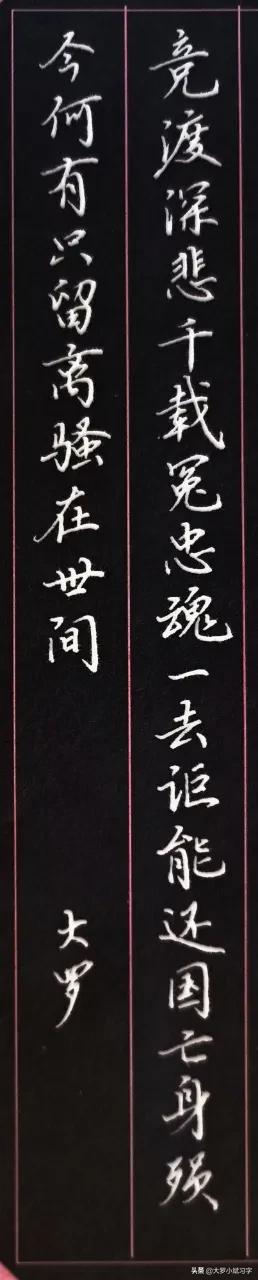 竞渡深悲千载冤忠魂一去讵能还国亡身殒
今何有只留离骚在世间
大罗
头条 @大罗小斌习字